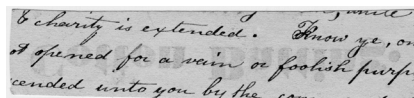 & charity is extended. Know ye, on
ot opened for a vain or foolish purp
cended unto you by the